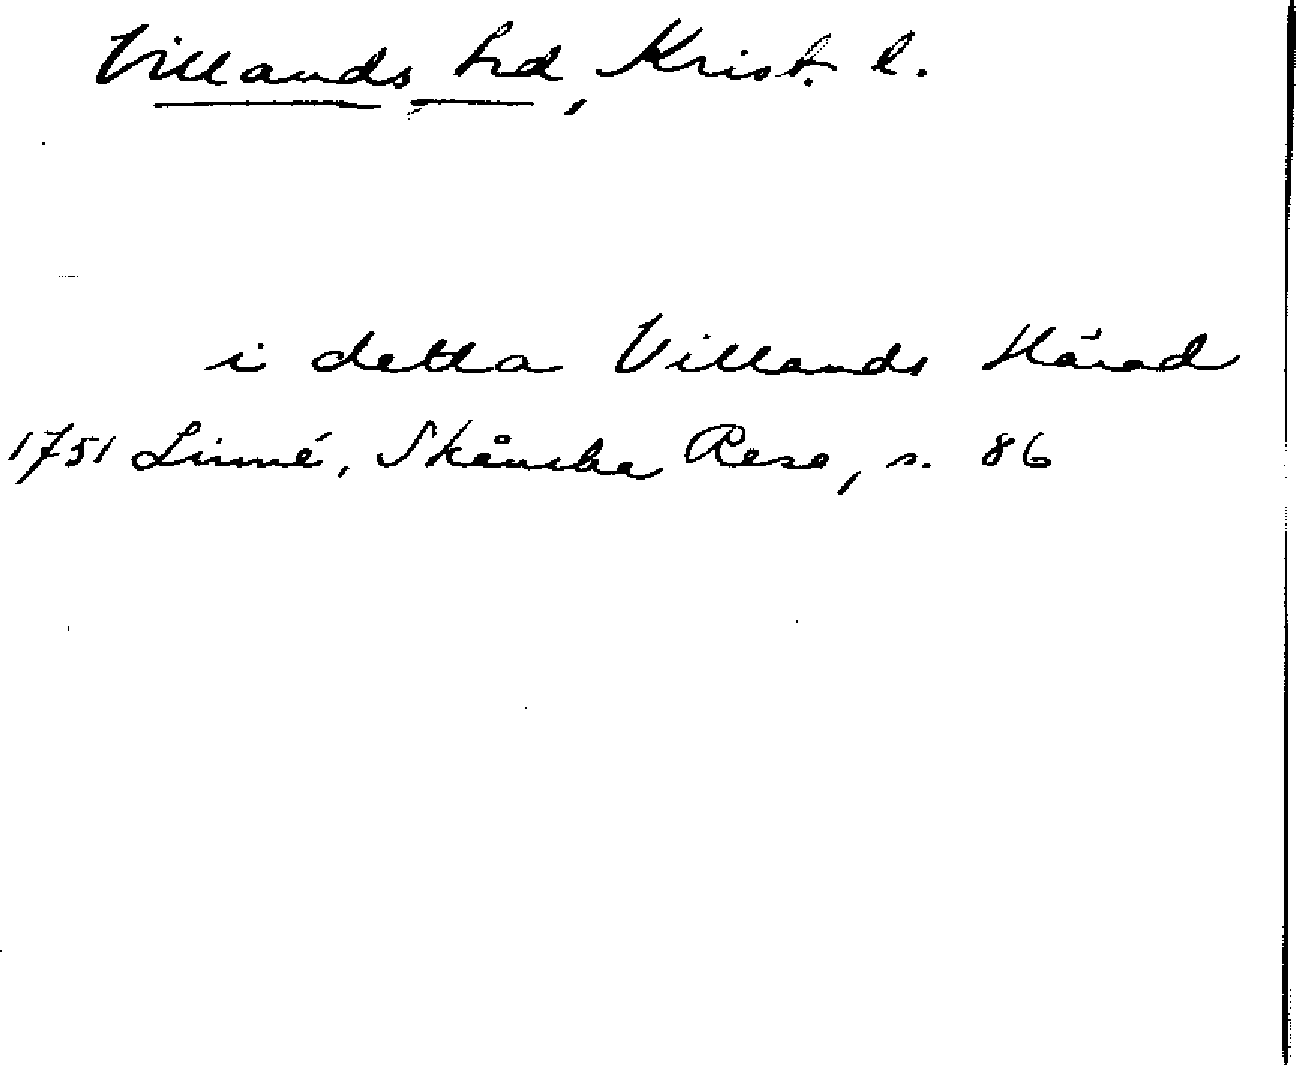 Villands hd, Krist. l.
i detta Villands Härad
1751 Linné, Skånska Resa, s. 86